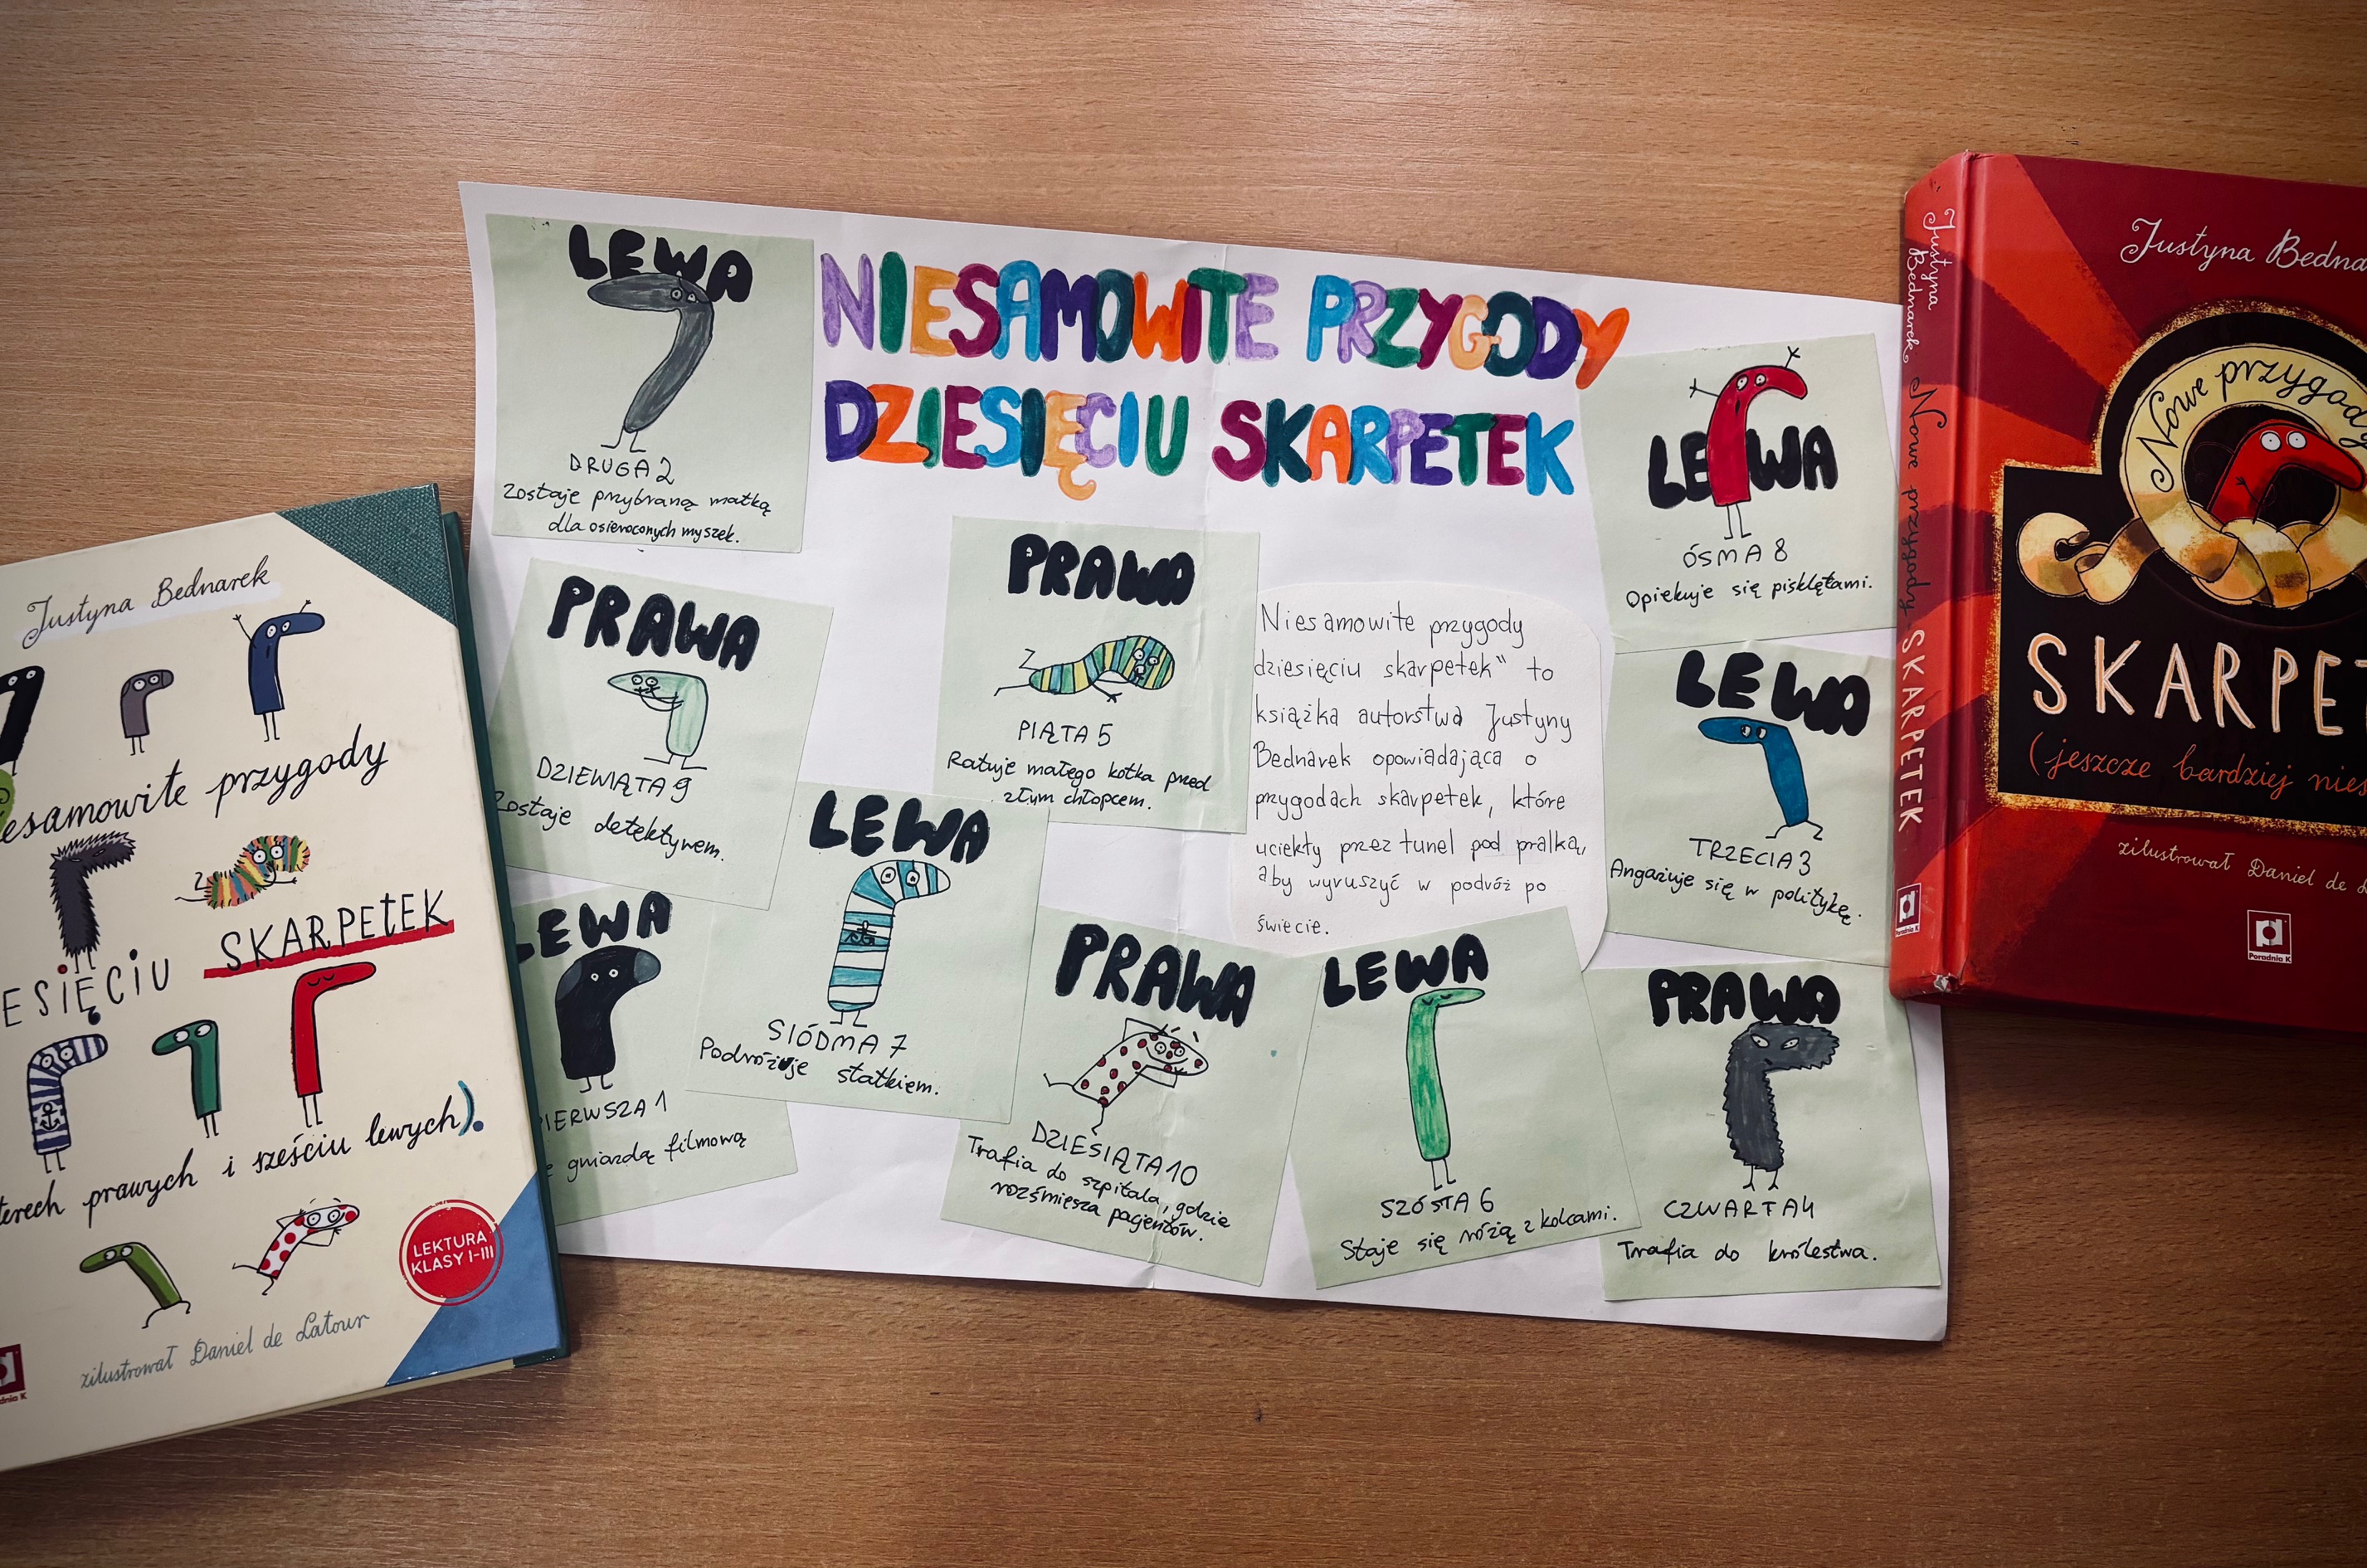 Justyna Bednarek
esamowite przygody
ESIĘCIU SKARPETEK
terech prawych i sześciu lewych).
LEKTURA
KLASY I-III
zilustrował Daniel de Latour
NIESAMOWITE PRZYGODY
DZIESIĘCIU SKARPETEK
LEWA
DRUGA 2
Zostaje przybraną matką
dla osieroconych myszek.
PRAWA
DZIEWIĄTA 9
Zostaje detektywem.
LEWA
PIERWSZA 1
gwiazdą filmową
PRAWA
PIĄTA 5
Ratuje małego kotka przed
złym chłopcem.
LEWA
SIÓDMA 7
Podróżuje statkiem.
Niesamowite przygody
dziesięciu skarpetek" to
książka autorstwa Justyny
Bednarek opowiadająca o
przygodach skarpetek, które
uciekły przez tunel pod pralką,
aby wyruszyć w podróż po
świecie.
PRAWA
DZIESIĄTA 10
Trafia do szpitala, gdzie
rozśmiesza pacjentów.
LEWA
SZÓSTA 6
Staje się różą z kolcami.
LEWA
ÓSMA 8
Opiekuje się pisklętami.
LEWA
TRZECIA 3
Angażuje się w politykę.
PRAWA
CZWARTA 4
Trafia do królestwa.
Justyna
Bednarek Nowe przygody SKARPETEK
Poradnia K
Justyna Bedna
Nowe przygody
SKARPET
(jeszcze bardziej nies
zilustrował Daniel de L
Poradnia K